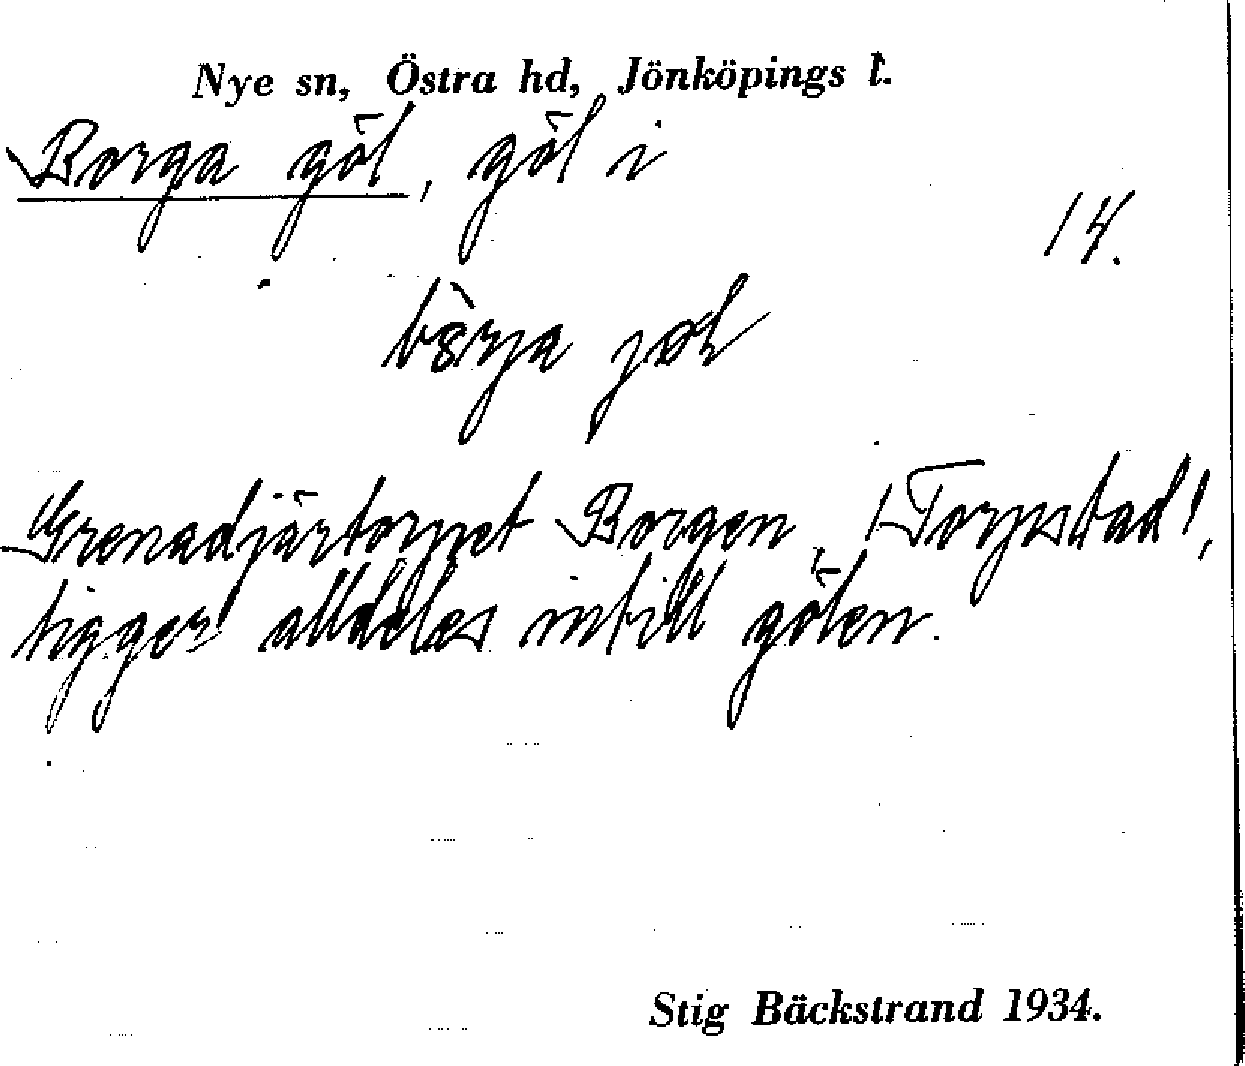 Nye sn, Östra hd, Jönköpings l.
Borga göl, göl i
14.
Grenadjärtorpet Borgen, "Torpstad",
ligger alldeles intill gölen.
Stig Bäckstrand 1934.